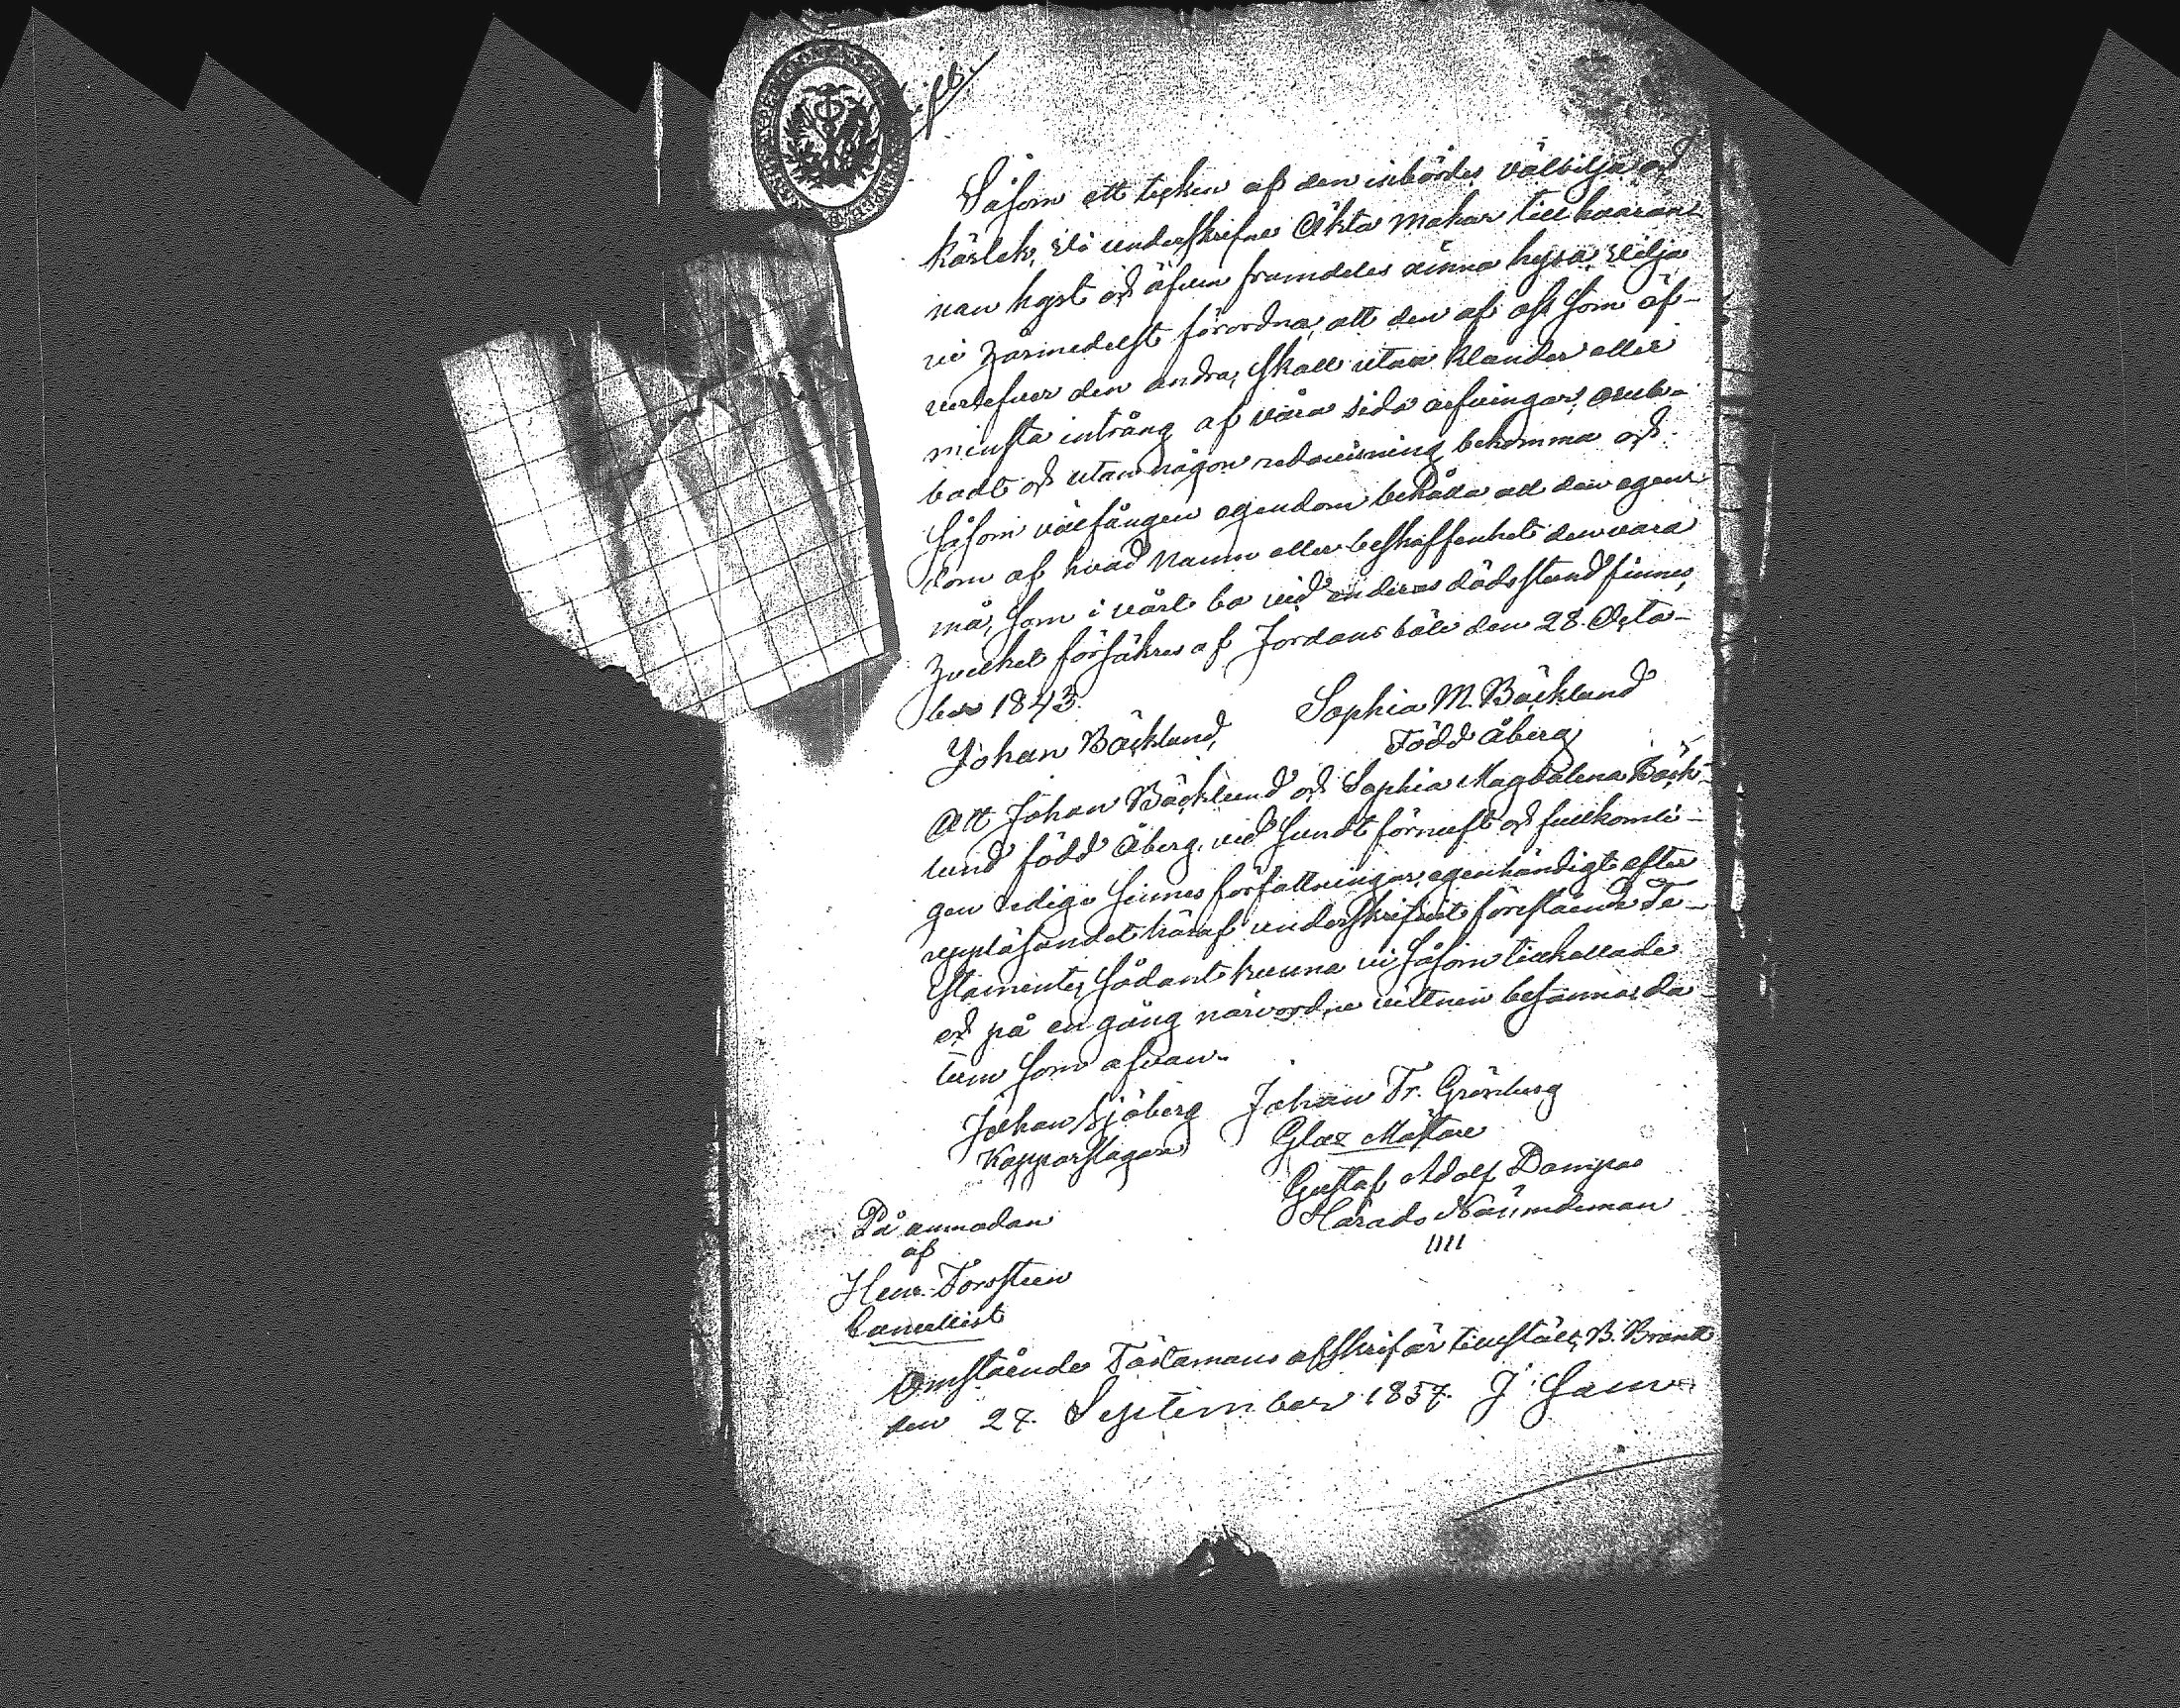 Såsom ett teken af den inbördes välvilja och
kärlek, Vi underskrifne Äkta Makar till hvaran-
nan hyst och äfven framdeles ämna hysa, Vilja
vi härmedelst förordna, att den af oss som öf-
verlefver den andra, skall utan klander eller
minsta intrång af våra sido arfvingar, omb-
badt och utan någon redovisning bekomma och
såsom välfången egendom behålla all den egen-
dom af hvad namn eller beskaffenhet den vara
må, som i vårt bo vid enderas dödsstund finnes,
hvilket försäkres af Jordansböle den 28. Octo-
ber 1843.
Johan Bäcklund, Sophia M. Bäcklund
Född Åberg
Att Johan Bäcklund och Sophia Magdalena Bäck-
lund född Åberg, vid sundt förnuft och fullkomli-
gen redige sinnes författningar, egenhändigt efter
uppläsandet häraf underskrifvit förestående Te-
stamente, sådant kunna vi såsom tillkallade
och på en gång närvordne vittnen besanna, da-
tum som ofvan.
Johan Sjöberg Johan Fr. Grönberg
Kopparslagare Glas Mästare
Gustaf Adolf
Härads Nämndeman
På anmodan
af
Henr. Forssteen
Cancellist
Omstående Testamens afskrif är tillstält, B. Brandt
den 27. September 1857. J